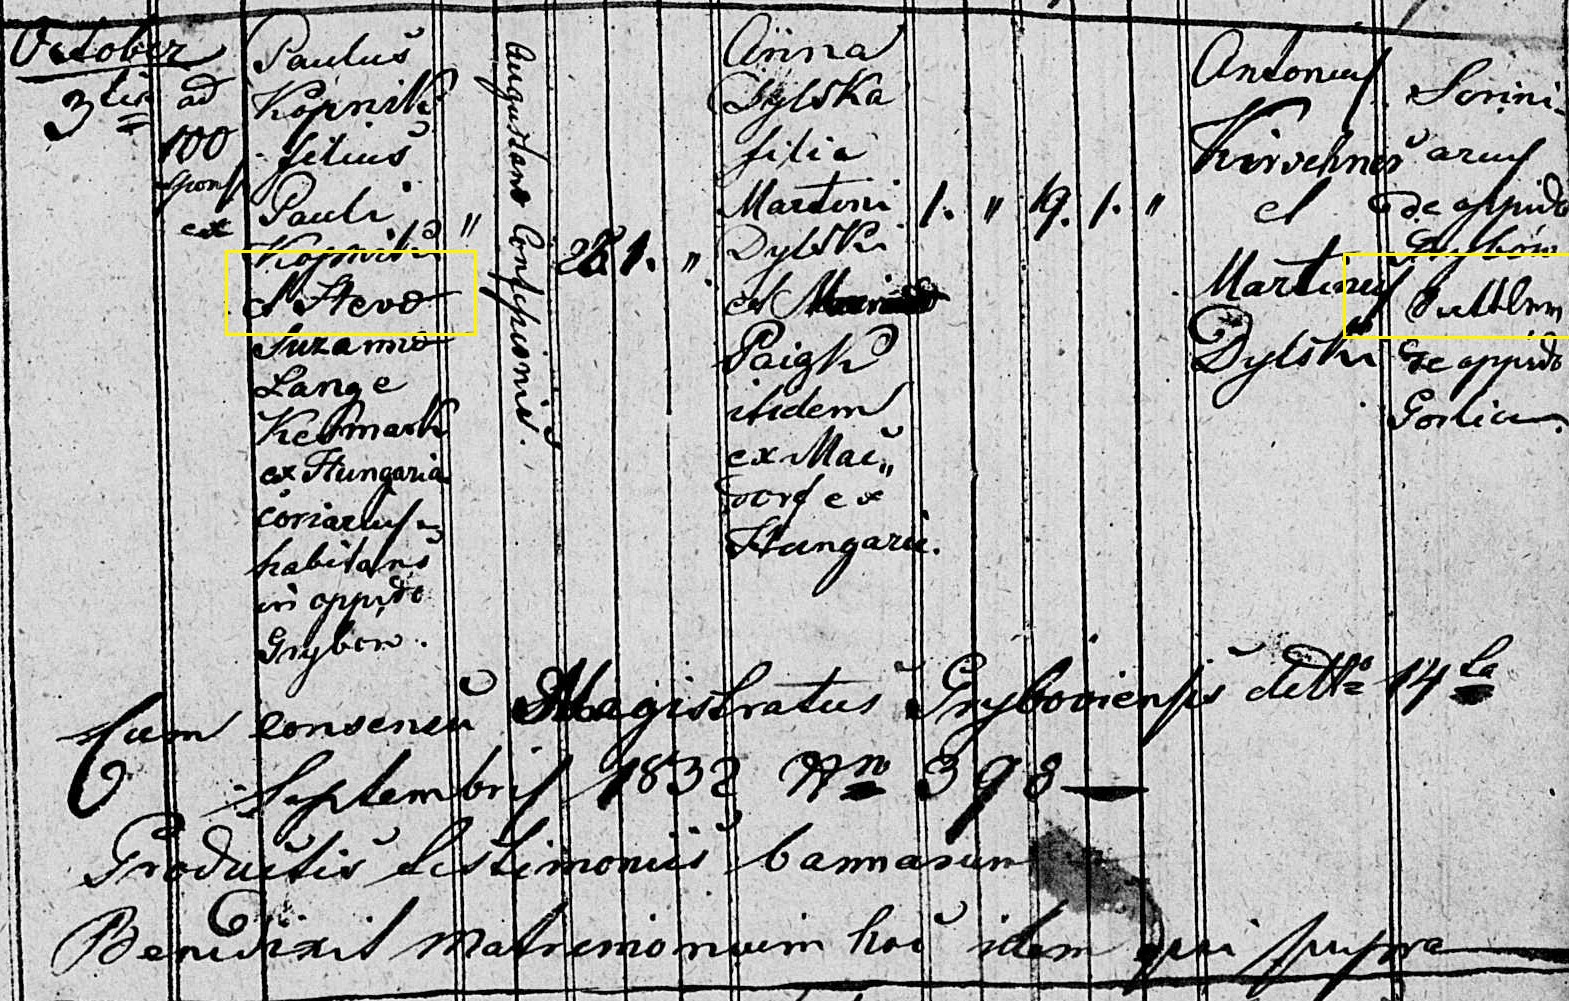 October
3tia
ad
100
ex
Paulus
Kopnik
filius
Pauli
Kopnik
et
Suzanna
Lange
Kesmark
ex Hungaria
coriarius
habitans
in oppido
Grybow.
Augustano Confessionis.
28 1. "
Anna
Dylska
filia
Martini
Dylski
et
Paigk
itidem
ex Mai„
dorf ex
Hungaria.
1. " 19. 1. "
Antonius
Kirschner
et
Martinus
Dylski
Scrini-
arius
de oppido
Grybow
de oppido
Gorlice.
Cum consensu Magistratus Gryboviensis ddtto 14ta
Septembris 1832 Nro 398
Productis testimoniis bannarum
Benedixit matremonium hoc idem qui supra